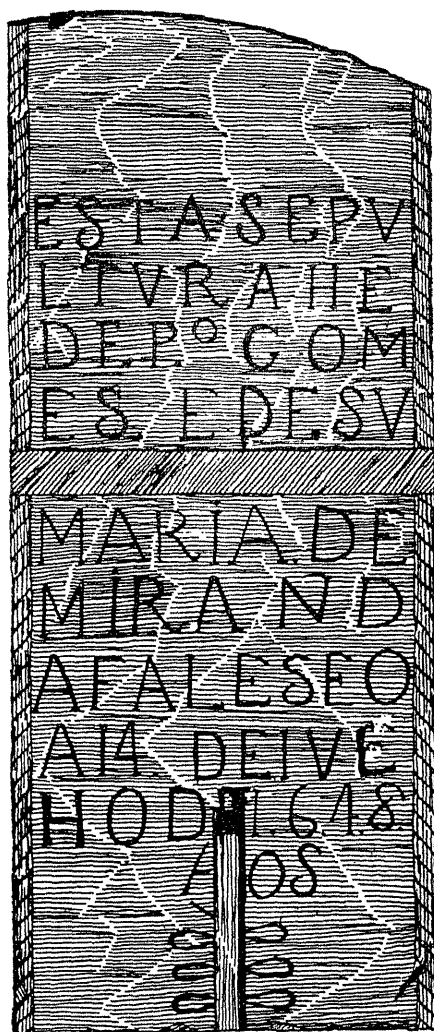 ESTA SEPV
LTVRA HE
DE P.º GOM
ES E DE SV
MARIA DE
MIRAND
A FALESEO
A 14. DE IVE
HO D 1.6.4.8.
A OS